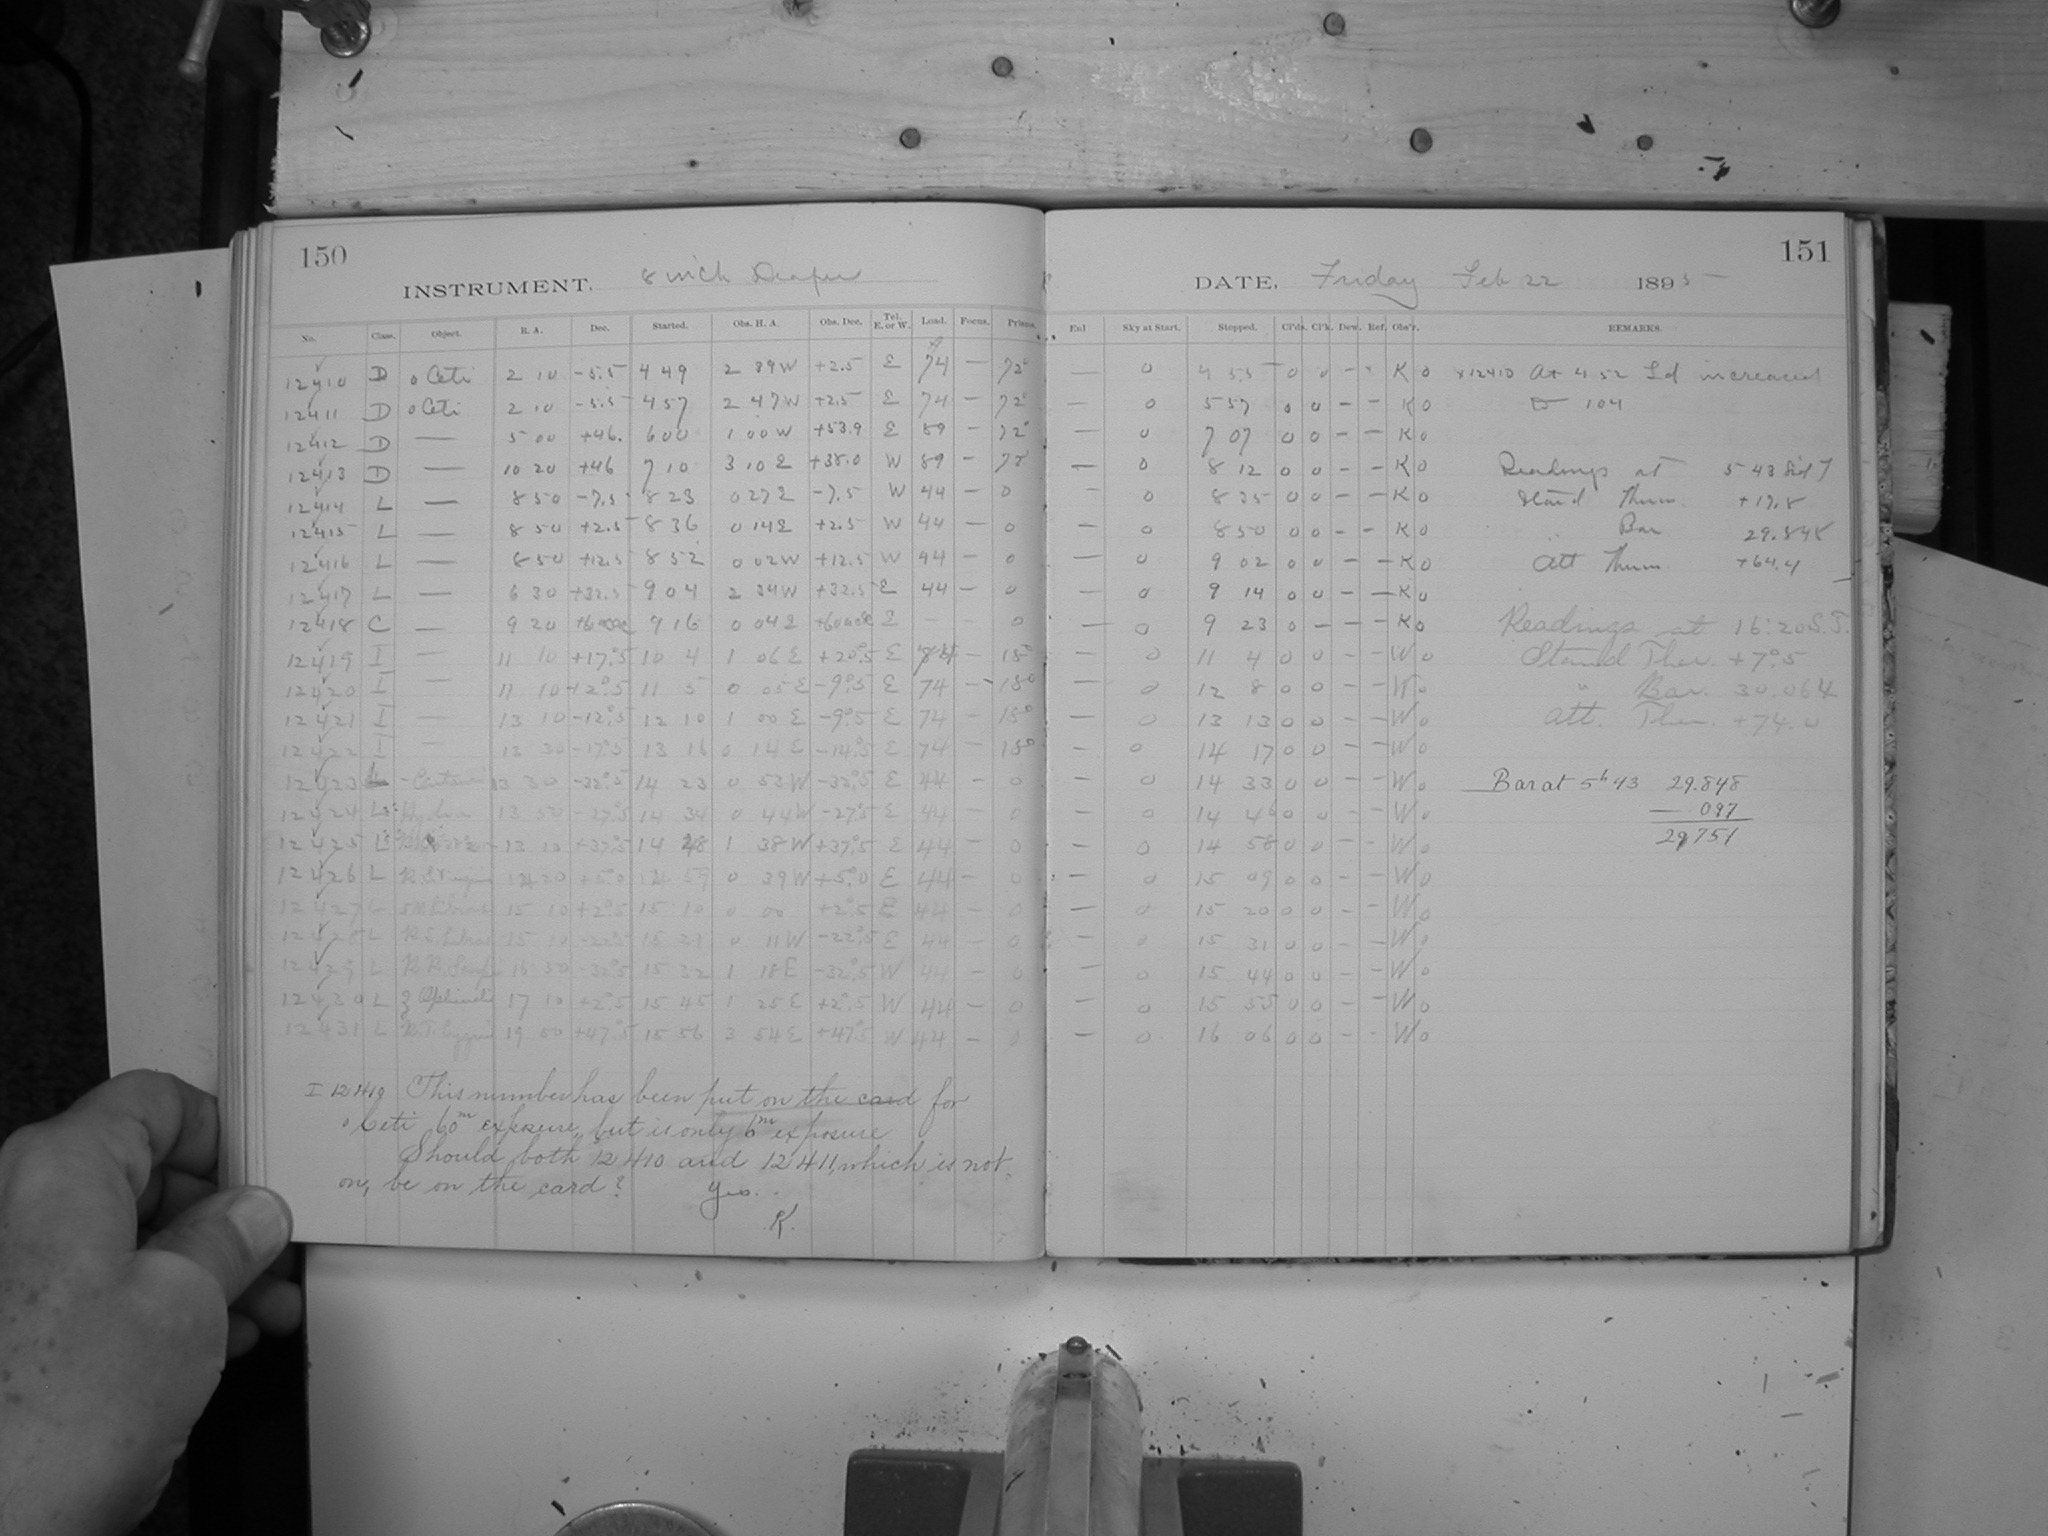 150
INSTRUMENT. 8 inch Draper
No. Class. Object. R. A. Dec. Started. Obs. H. A. Obs. Dec. Tel. E. or W. Load. Focus. Prisms.
12410 D o Ceti 2 10 -5.5 4 49 2 39 W +2.5 E 74 —
12411 D o Ceti 2 10 -5.5 4 57 2 47 W +2.5 E 74 —
12412 D — 5 00 +46. 6 00 1 00 W +53.9 E 89 —
12413 D — 10 20 +46 7 10 3 10 E +38.0 W 89 —
12414 L — 8 50 -7.5 8 23 0 27 E -7.5 W 44 — 0
12415 L — 8 50 +2.5 8 36 0 14 E +2.5 W 44 — 0
12416 L — 8 50 +12.5 8 52 0 02 W +12.5 W 44 — 0
12417 L — 6 30 +32.5 9 04 2 34 W +32.5 E 44 — 0
12418 C — 9 20 9 16 0 04 E E 0
12419 I — 11 10 +17°.5 10 4 1 06 E +20°.5 E — 18°
12420 I — 11 10 -12°.5 11 5 0 05 E -9°.5 E 74 — 18°
12421 I — 13 10 -12°.5 12 10 1 00 E -9°.5 E 74 — 18°
12422 I — 13 30 -17°.5 13 16 0 14 E -14°.5 E 74 — 18°
12423 L 13 30 -32°.5 14 23 0 53 W -32°.5 E 44 — 0
12424 Hydra 13 50 -27°.5 14 34 0 44 W -27°.5 E 44 0
12425 13 10 +37°.5 14 48 1 38 W +37°.5 E 44 — 0
12426 L +5°.0 14 59 0 39 W +5°.0 E 44 — 0
12427 L 15 10 +2°.5 15 10 0 00 +2°.5 E 44 — 0
12428 L 15 10 -22°.5 15 21 0 11 W -22°.5 E 44 — 0
12429 L 16 50 -32°.5 15 32 1 18 E -32°.5 W 44 — 0
L 17 10 +2°.5 15 45 1 25 E +2°.5 W 44 — 0
12431 L 19 50 +47°.5 15 56 3 54 E +47°.5 W 44 — 0
I 12410 This number has been put on the card for
o Ceti 60m exposure, but is only 6m exposure
Should both 12410 and 12411, which is not
on, be on the card? Yes.
K.
151
DATE, Friday Feb 22 1895
Exl Sky at Start. Stopped. Cl'ds. Cl'k. Dew. Ref. Obs'r. REMARKS.
— 0 4 55 0 0 - - K 0 x12410 At 4 52 Ld increased
— 0 5 57 0 0 - - K 0 to 104
— 0 7 07 0 0 - - K 0
— 0 8 12 0 0 - - K 0 Readings at 5 43 Sid T
— 0 8 35 0 0 - - K 0 Stand Therm. +17.8
— 0 8 50 0 0 - - K 0 " Bar 29.848
— 0 9 02 0 0 - - K 0 Att Therm. +64.4
— 0 9 14 0 0 - - K 0
— 0 9 23 0 - - - K 0 Readings at 16:20 S.T.
— 0 11 4 0 0 - - W 0 Stand Ther. +7°.5
— 0 12 8 0 0 - - W 0 " Bar. 30.064
— 0 13 13 0 0 - - W 0 Att. Ther. +74.0
— 0 14 17 0 0 - - W 0
— 0 14 33 0 0 - - W 0 Bar at 5h 43 29.848
— 0 14 46 0 0 - - W 0 — 097
— 0 14 58 0 0 - - W 0 29.751
— 0 15 09 0 0 - - W 0
— 0 15 20 0 0 - - W 0
— 0 15 31 0 0 - - W 0
— 0 15 44 0 0 - - W 0
— 0 15 55 0 0 - - W 0
— 0 16 06 0 0 - - W 0